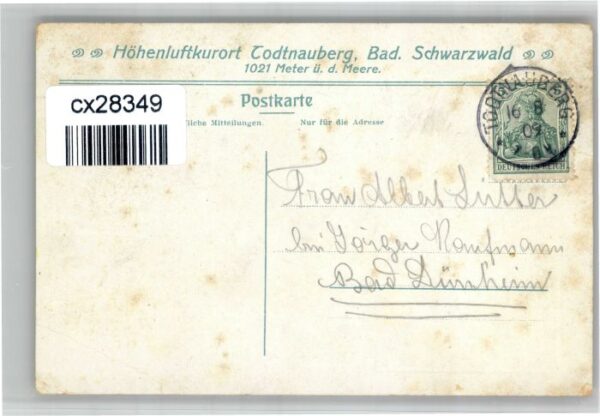 Höhenluftkurort Todtnauberg, Bad. Schwarzwald
1021 Meter ü. d. Meere.
cx28349
Postkarte
liche Mitteilungen. Nur für die Adresse
TODTNAUBERG
16 8
09
DEUTSCHES REICH
Frau Albert Sutter
bei Görger Kaufmann
Bad Dürrheim